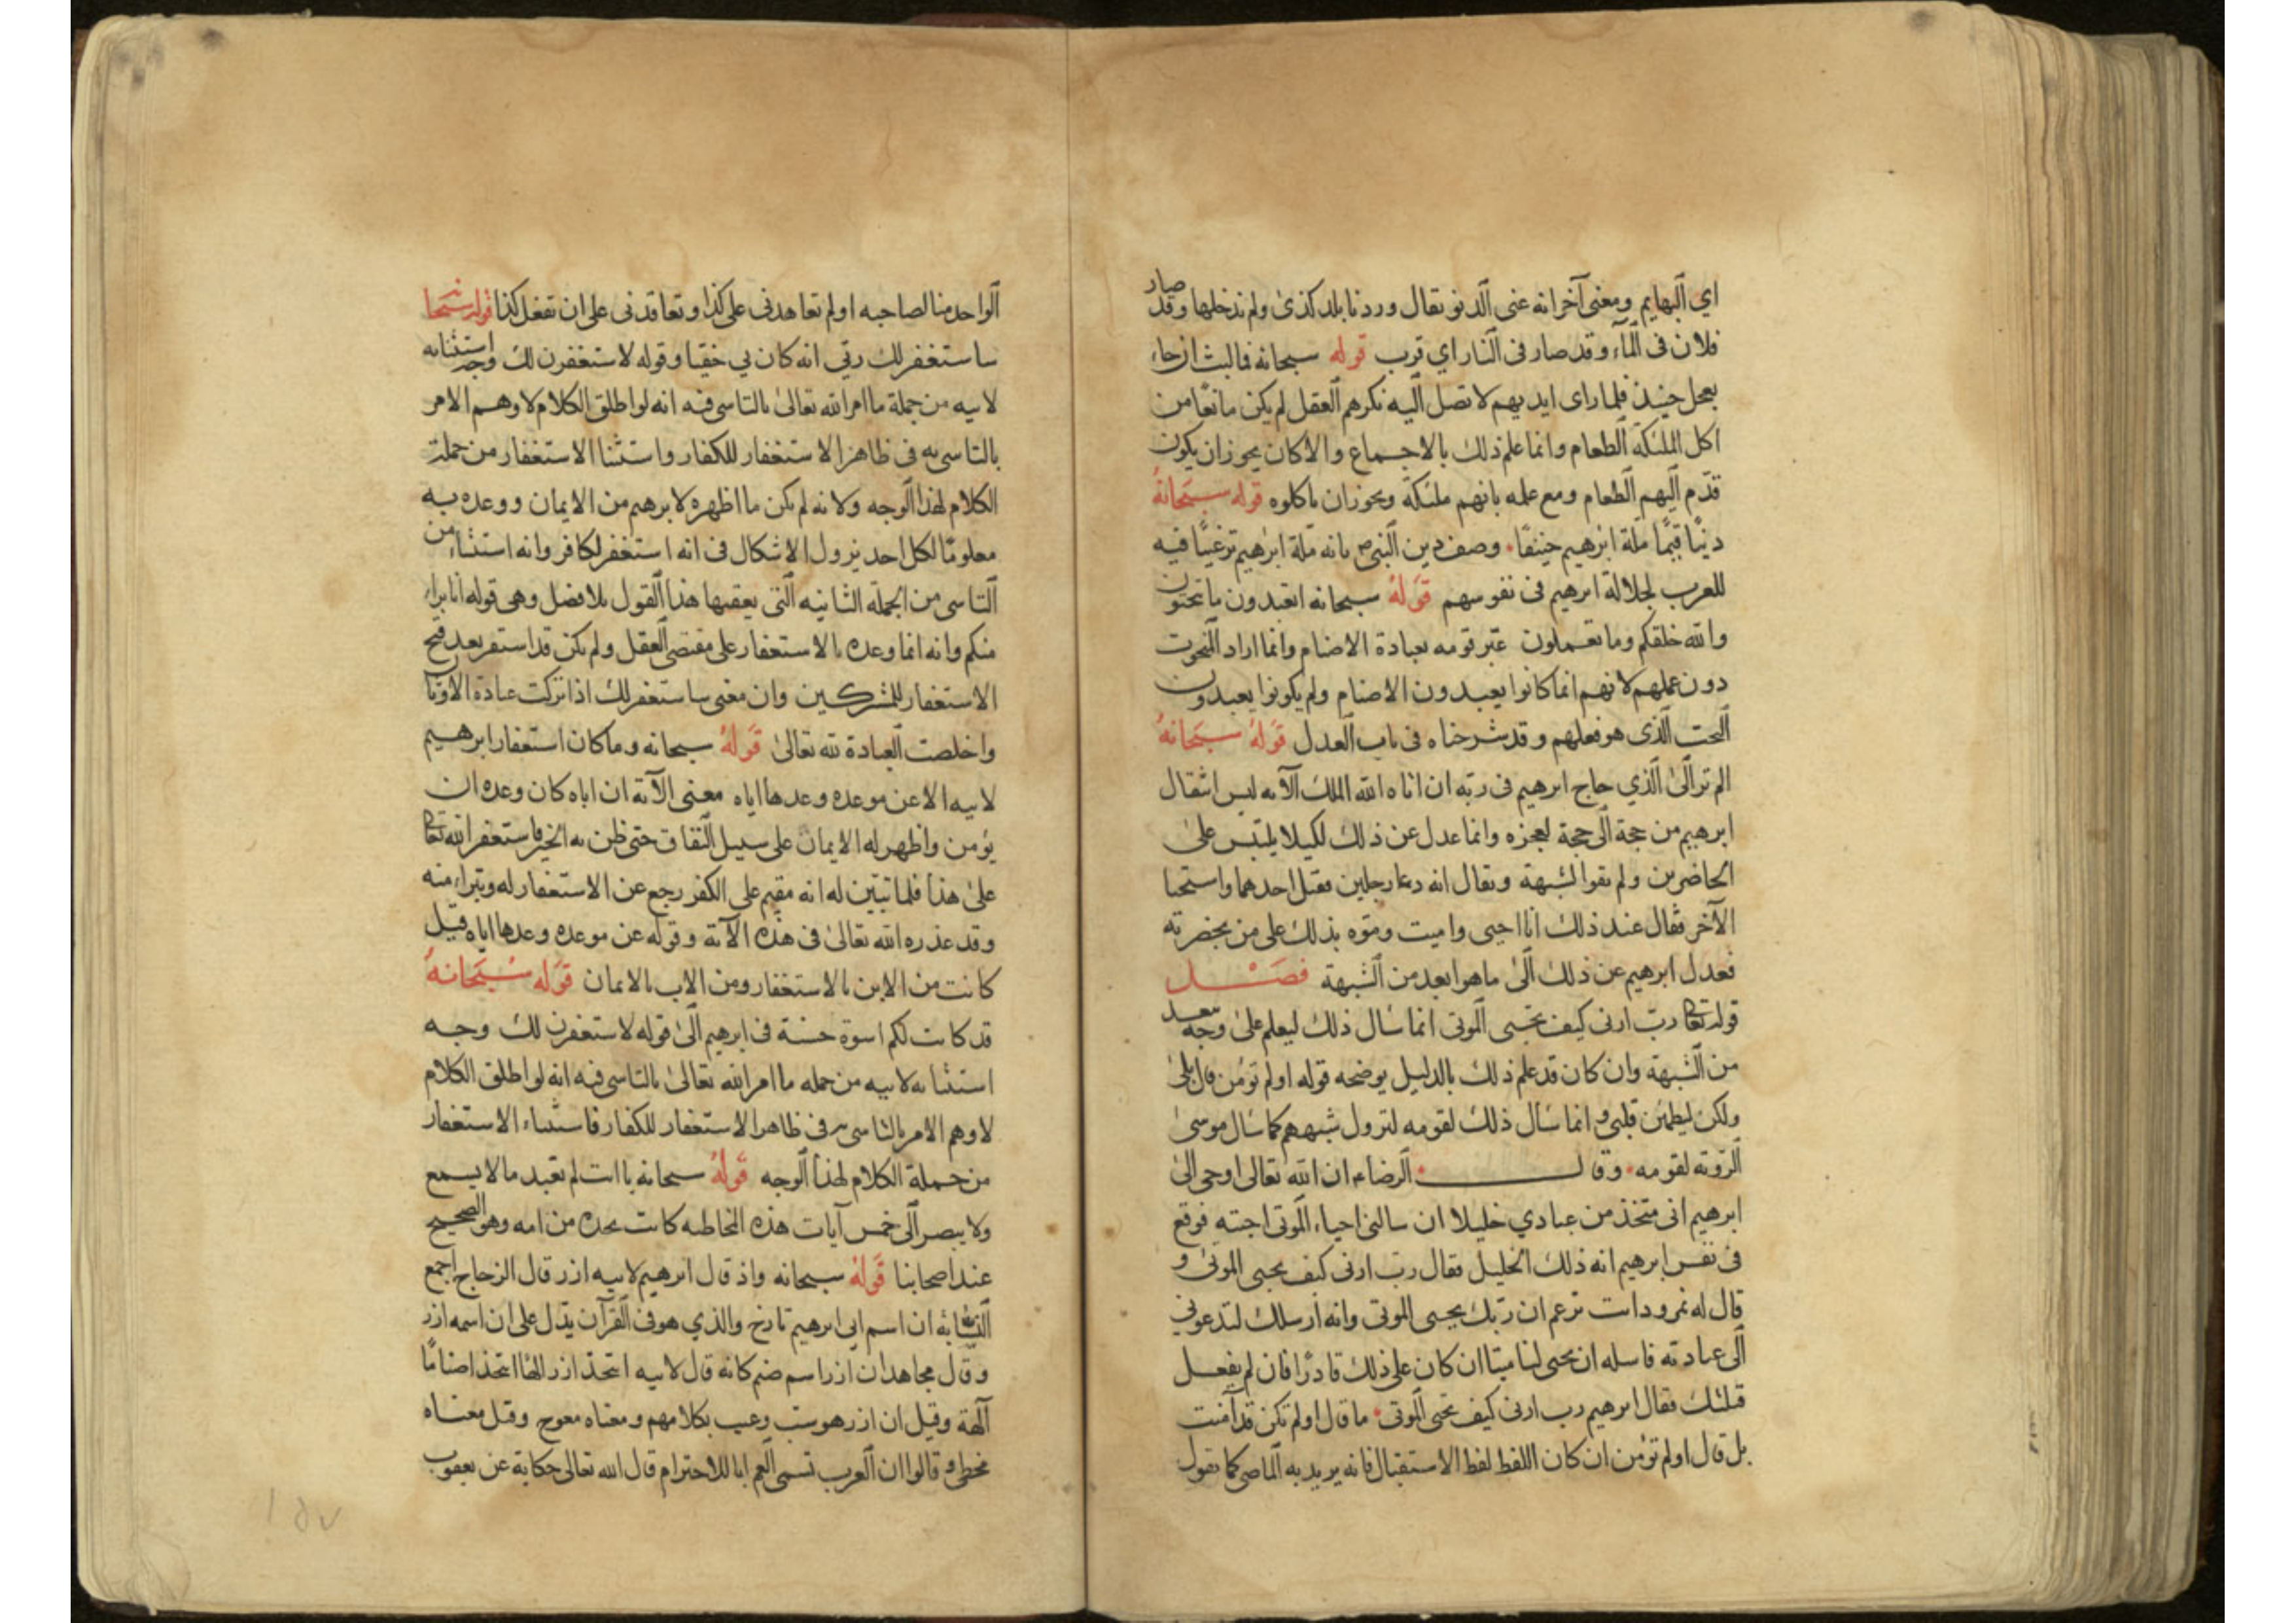 اي البهايم ومعنى آخر انه عنى الدنو يقال وردنا بلد كذى ولم ندخلها وقد صار
فلان فى المآء وقد صار فى النار اي قرب قوله سبحانه فما لبث ان جاء
بعجل حنيذ فلما راى ايديهم لا تصل اليه نكرهم العقل لم يكن مانعا من
اكل الملئكة الطعام وانما علم ذلك بالاجماع والا كان يجوز ان يكون
قدم اليهم الطعام ومع علمه بانهم ملئكة ويجوز ان ياكلوه قوله سبحانه
دينا قيما ملة ابرهيم حنيفا وصف دين النبى ص بانه ملة ابرهيم ترغيبا فيه
للعرب لجلالة ابرهيم فى نفوسهم قوله سبحانه اتعبدون ما تنحتون
والله خلقكم وما تعملون عير قومه بعبادة الاصنام وانما اراد المنحوت
دون عملهم لانهم انما كانوا يعبدون الاصنام ولم يكونوا يعبدون
النحت الذى هو فعلهم وقد شرحناه فى باب العدل قوله سبحانه
الم تر الى الذي حاج ابرهيم فى ربه ان اتاه الله الملك الآيه ليس انتقال
ابرهيم من حجة الى حجة لعجزه وانما عدل عن ذلك لكيلا يلتبس على
الحاضرين ولم يقوا لشبهة ويقال انه دعا رجلين فقتل احدهما واستحيا
الآخر فقال عند ذلك انا احيى واميت وموه بذلك على من بحضرته
فعدل ابرهيم عن ذلك الى ما هو ابعد من الشبهة فصل
قوله تعالى رب ارنى كيف تحيى الموتى انما سأل ذلك ليعلم على وجه يبعد
من الشبهة وان كان قد علم ذلك بالدليل يوضحه قوله اولم تؤمن قال بلى
ولكن ليطمئن قلبى وانما سأل ذلك لقومه لتزول شبههم كما سأل موسى
الرؤية لقومه وقال الرضا ع ان الله تعالى اوحى الى
ابرهيم انى متخذ من عبادي خليلا ان سالنى احياء الموتى اجبته فوقع
فى نفس ابرهيم انه ذلك الخليل فقال رب ارنى كيف تحيى الموتى و
قال له نمرود انت تزعم ان ربك يحيى الموتى وانه ارسلك لتدعوني
الى عبادته فاسله ان يحيى لنا ميتا ان كان على ذلك قادرا فان لم يفعل
قتلتك فقال ابرهيم رب ارنى كيف تحيى الموتى ما قال اولم تكن قد آمنت
بل قال اولم تؤمن ان كان اللفظ لفظ الاستقبال فانه يريد به الماضى كما يقول
الواحد منا لصاحبه اولم تعاهدنى على كذا وتعاقدنى على ان تفعل كذا قوله سبحانه
ساستغفر لك ربي انه كان بي حفيا وقوله لاستغفرن لك وجه استثنائه
لابيه من جملة ما امر الله تعالى بالتاسى فيه انه لو اطلق الكلام لاوهم الامر
بالتاسى به فى ظاهر الاستغفار للكفار واستثنا الاستغفار من جملة
الكلام لهذا الوجه ولانه لم يكن ما اظهره لابرهيم من الايمان ووعده به
معلوما لكل احد يزول الاشكال فى انه استغفر لكافر وانه استثناء من
التاسى من الجملة الثانيه التى يعقبها هذا القول بلا فصل وهى قوله انا براء
منكم وانه انما وعده بالاستغفار على مقتضى العقل ولم يكن قد استقر بعد قبح
الاستغفار للمشركين وان معنى ساستغفر لك اذا تركت عبادة الاوثان
واخلصت العبادة لله تعالى قوله سبحانه وما كان استغفار ابرهيم
لابيه الا عن موعدة وعدها اياه معنى الآية ان اباه كان وعده ان
يؤمن واظهر له الايمان على سبيل النفاق حتى ظن به الخير فاستغفر الله تعالى
على هذا فلما تبين له انه مقيم على الكفر رجع عن الاستغفار له وتبراء منه
وقد عذره الله تعالى فى هذه الآية وقوله عن موعدة وعدها اياه قيل
كانت من الابن بالاستغفار ومن الاب بالايمان قوله سبحانه
قد كانت لكم اسوة حسنة فى ابرهيم الى قوله لاستغفرن لك وجه
استثنائه لابيه من جمله ما امر الله تعالى بالتاسى فيه انه لو اطلق الكلام
لاوهم الامر بالتاسى به فى ظاهر الاستغفار للكفار فاستثناء الاستغفار
من جملة الكلام لهذا الوجه قوله سبحانه يا ابت لم تعبد ما لا يسمع
ولا يبصر الى خمس آيات هذه المخاطبه كانت لجده من امه وهو الصحيح
عند اصحابنا قوله سبحانه واذ قال ابرهيم لابيه ازر قال الزجاج اجمع
النسابة ان اسم ابى ابرهيم تارخ والذي هو فى القرآن يدل على ان اسمه ازر
وقال مجاهد ان ازر اسم صنم كانه قال لابيه اتتخذ ازر الها اتتخذ اصناما
آلهة وقيل ان ازر هو سب وعيب بكلامهم ومعناه معوج وقيل معناه
مخطى وقالوا ان العرب تسمى العم ابا للاحترام قال الله تعالى حكاية عن يعقوب
١٥٧